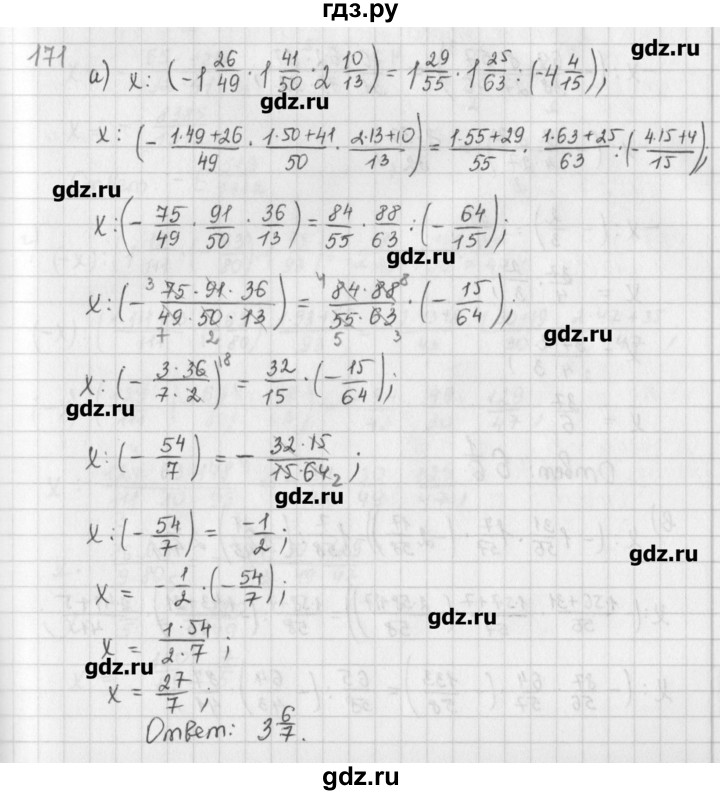 гдз.ру
171
gdz.ru
а) x : (-1 26/49 · 1 41/50 · 2 10/13) = 1 29/55 · 1 25/63 : (-4 4/15);
gdz.ru
x : (- (1·49+26)/49 · (1·50+41)/50 · (2·13+10)/13) = (1·55+29)/55 · (1·63+25)/63 : (- (4·15+4)/15);
gdz.ru
x : (- 75/49 · 91/50 · 36/13) = 84/55 · 88/63 : (- 64/15);
gdz.ru
x : (- ³ (75·91·36)/(49·50·13)) = ⁴ (84·88)/(55·63) ⁸ · (- 15/64);
7 2 5 3
gdz.ru
x : (- (3·36)/(7·2)) ¹⁸ = 32/15 · (- 15/64);
gdz.ru
x : (- 54/7) = - (32·15)/(15·64) ₂;
gdz.ru
x : (- 54/7) = -1/2;
gdz.ru
x = - 1/2 : (- 54/7);
gdz.ru
x = (1·54)/(2·7);
gdz.ru
x = 27/7;
Ответ: 3 6/7.
gdz.ru